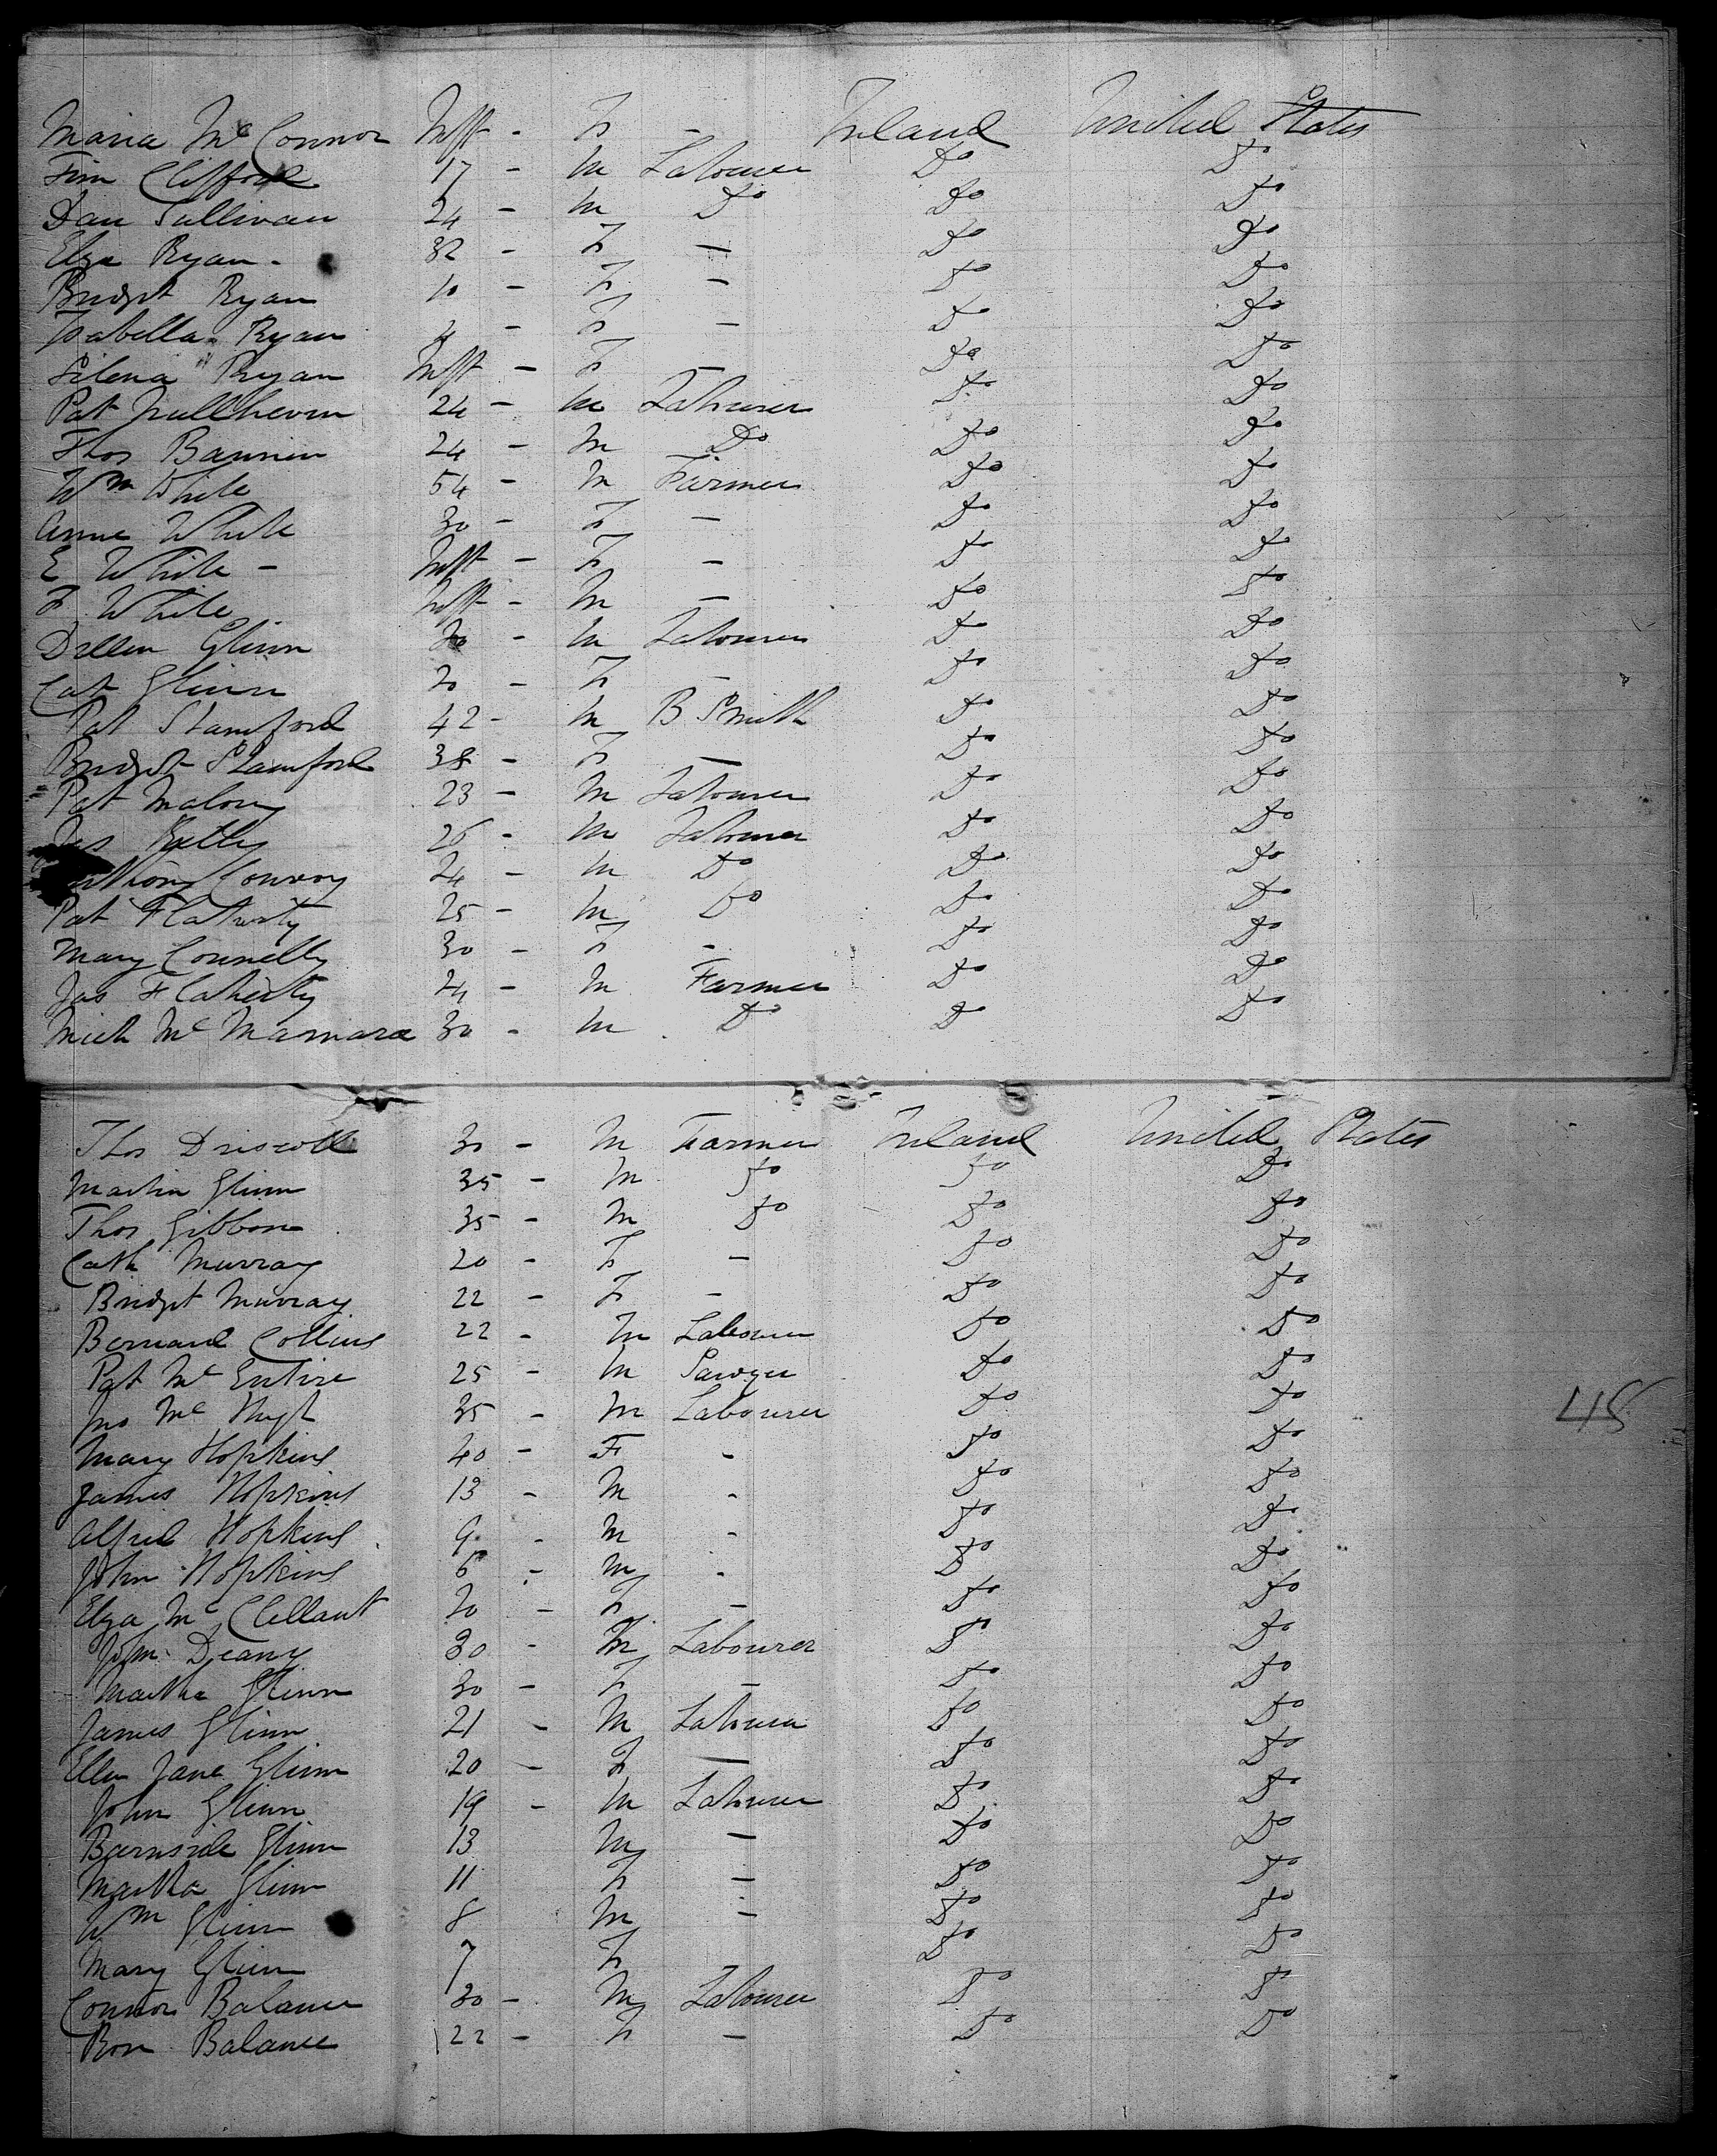 Maria Mc Connor Inft - F - Ireland United States
Tim Clifford 17 - M Labourer Do Do
Dan Sullivan 24 - M Do Do Do
Eliza Ryan - 32 - F - Do Do
Bridget Ryan 10 - F - Do Do
Isabella Ryan 4 - F - Do Do
Silena Ryan Inft - F - Do Do
Pat 24 - M Labourer Do Do
Thos Bannin 24 - M Do Do Do
Wm White 54 - M Farmer Do Do
Anne White 30 - F - Do Do
E White - Inft - F - Do Do
F White Inft - M - Do Do
Dillen Glinn - M Labourer Do Do
Cat Glinn 20 - F - Do Do
Pat Stamford 42 - M B Smith Do Do
Bridget Stamford 38 - F - Do Do
Pat Malony 23 - M Labourer Do Do
Jas 26 - M Labourer Do Do
Conroy 24 - M Do Do Do
Pat Flaherty 25 - M Do Do Do
Mary Connelly 30 - F - Do Do
Jas Flaherty 24 - M Farmer Do Do
Mich Mc Mamara 30 - M Do Do Do
Thos Driscoll 30 - M Farmer Ireland United States
Martin Glinn 35 - M Do Do Do
Thos Gibbons 35 - M Do Do Do
Cath Murray 20 - F - Do Do
Bridget Murray 22 - F - Do Do
Bernard Collins 22 - M Labourer Do Do
Pat Mc Entire 25 - M Sawyer Do Do
Jno Mc Hugh 35 - M Labourer Do Do
48
Mary Hopkins 40 - F - Do Do
James Hopkins 13 - M - Do Do
Alfred Hopkins 9 - M - Do Do
John Hopkins 6 - M - Do Do
Eliza Mc Clellant 20 - F - Do Do
John Deany 30 - M Labourer Do Do
Martha Glinn 30 - F - Do Do
James Glinn 21 - M Labourer Do Do
Ellen Jane Glinn 20 - F - Do Do
John Glinn 19 - M Labourer Do Do
Burnside Glinn 13 M - Do Do
Martha Glinn 11 F - Do Do
Wm Glinn 8 M - Do Do
Mary Glinn 7 F Do Do
Connor Balance 30 - M Labourer Do Do
Ron Balance 22 - F - Do Do